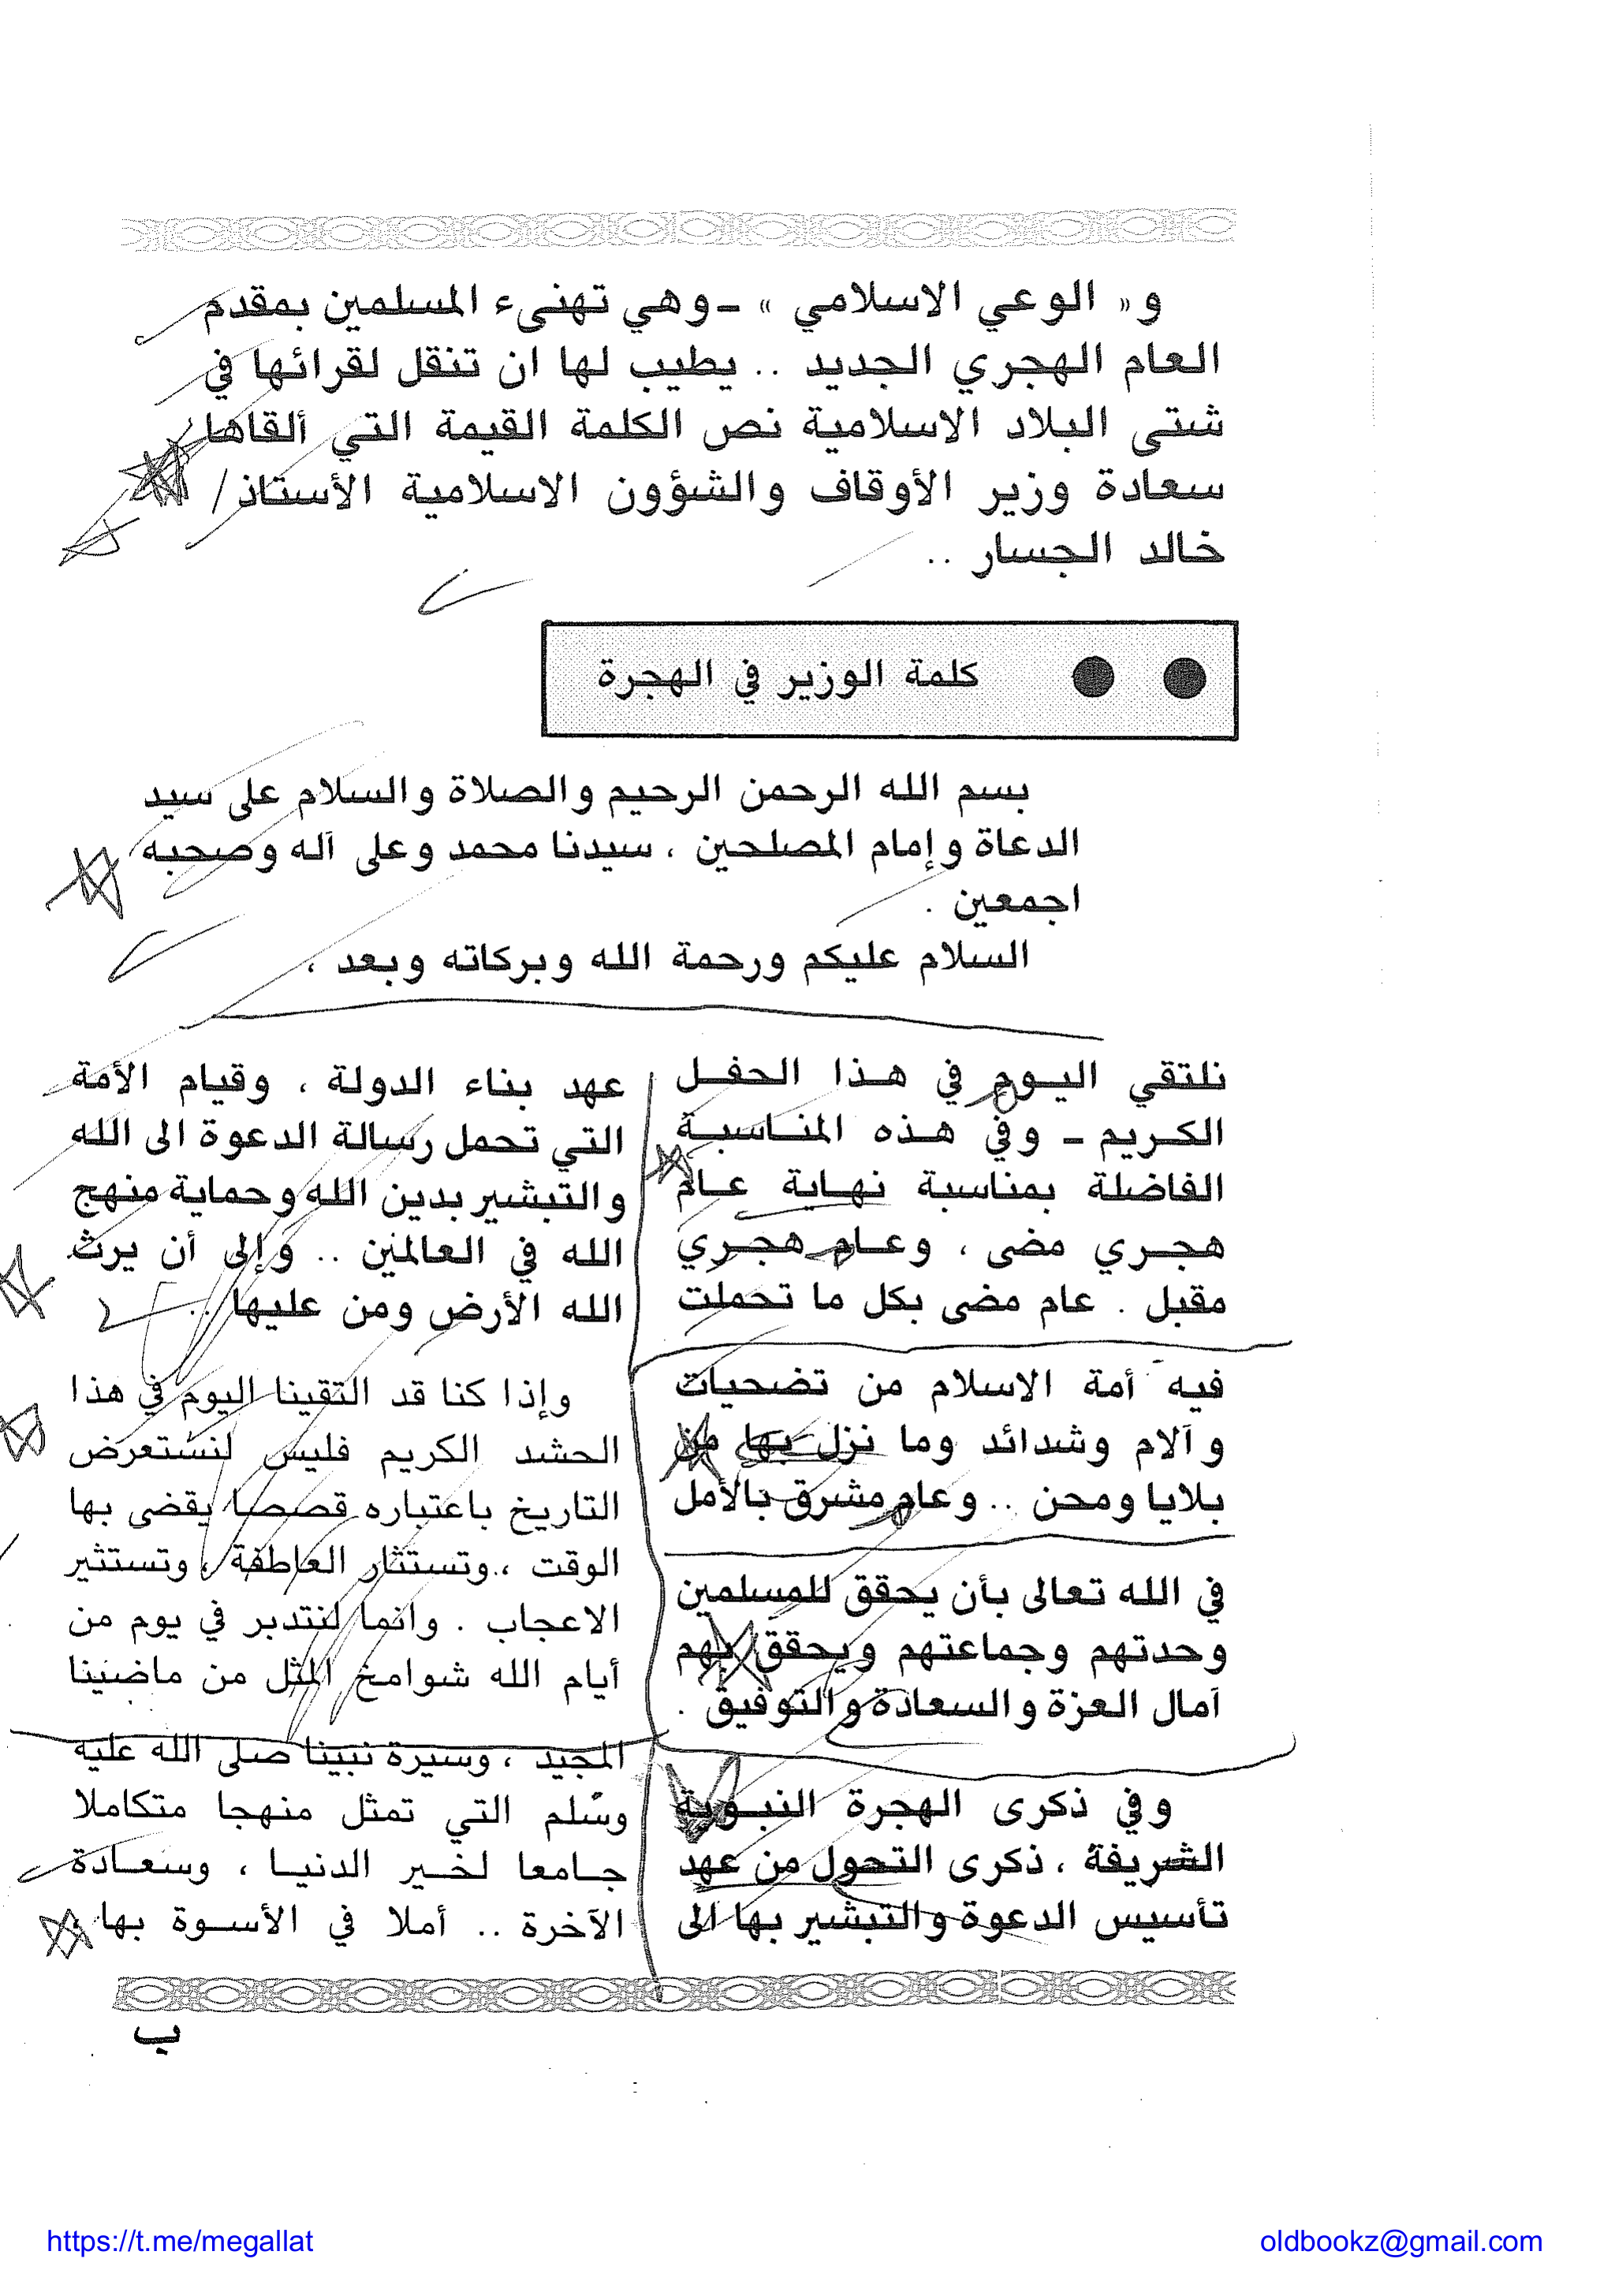 و« الوعي الاسلامي » ـ وهي تهنىء المسلمين بمقدم
العام الهجري الجديد .. يطيب لها ان تنقل لقرائها في
شتى البلاد الاسلامية نص الكلمة القيمة التي ألقاها
سعادة وزير الأوقاف والشؤون الاسلامية الأستاذ/
خالد الجسار ..
كلمة الوزير في الهجرة
بسم الله الرحمن الرحيم والصلاة والسلام على سيد
الدعاة وإمام المصلحين ، سيدنا محمد وعلى آله وصحبه
اجمعين .
السلام عليكم ورحمة الله وبركاته وبعد ،
نلتقي اليوم في هذا الحفل
الكريم ـ وفي هذه المناسبة
الفاضلة بمناسبة نهاية عام
هجري مضى ، وعام هجري
مقبل . عام مضى بكل ما تحملت
فيه أمة الاسلام من تضحيات
وآلام وشدائد وما نزل بها من
بلايا ومحن .. وعام مشرق بالأمل
في الله تعالى بأن يحقق للمسلمين
وحدتهم وجماعتهم ويحقق بهم
آمال العزة والسعادة والتوفيق .
وفي ذكرى الهجرة النبوية
الشريفة ، ذكرى التحول من عهد
تأسيس الدعوة والتبشير بها الى
عهد بناء الدولة ، وقيام الأمة
التي تحمل رسالة الدعوة الى الله
والتبشير بدين الله وحماية منهج
الله في العالمين .. وإلى أن يرث
الله الأرض ومن عليها ..
وإذا كنا قد التقينا اليوم في هذا
الحشد الكريم فليس لنستعرض
التاريخ باعتباره قصصا يقضى بها
الوقت ، وتستثار العاطفة ، وتستثير
الاعجاب . وانما لنتدبر في يوم من
أيام الله شوامخ المثل من ماضينا
المجيد ، وسيرة نبينا صلى الله عليه
وسلم التي تمثل منهجا متكاملا
جامعا لخير الدنيا ، وسعادة
الآخرة .. أملا في الأسوة بها
ب
https://t.me/megallat
oldbookz@gmail.com